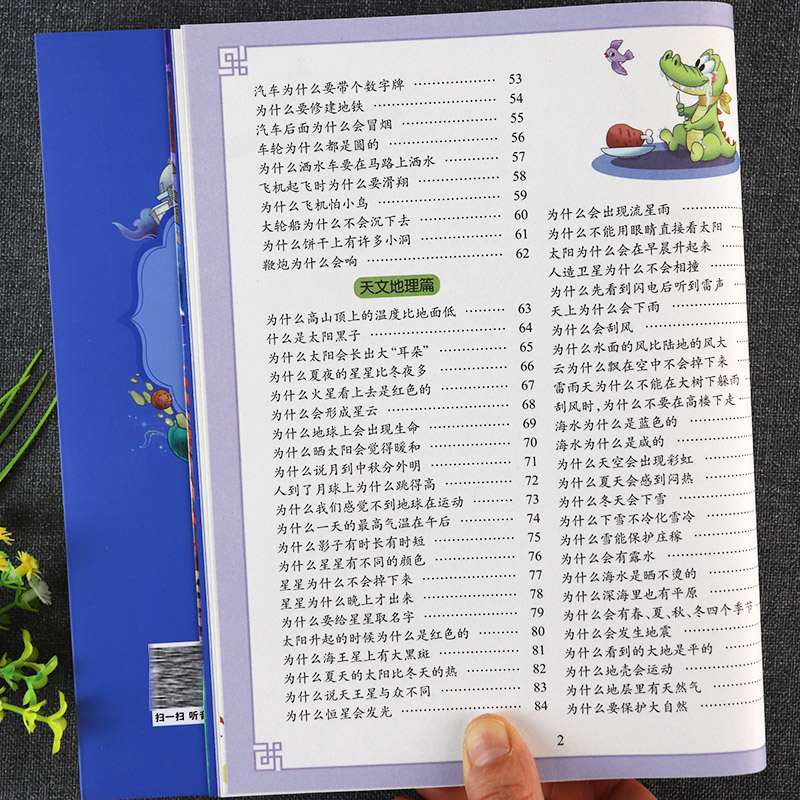 汽车为什么要带个数字牌 …………… 53
为什么要修建地铁 …………… 54
汽车后面为什么会冒烟 …………… 55
车轮为什么都是圆的 …………… 56
为什么洒水车要在马路上洒水 …………… 57
飞机起飞时为什么要滑翔 …………… 58
为什么飞机怕小鸟 …………… 59
大轮船为什么不会沉下去 …………… 60
为什么饼干上有许多小洞 …………… 61
鞭炮为什么会响 …………… 62
天文地理篇
为什么高山顶上的温度比地面低 …………… 63
什么是太阳黑子 …………… 64
为什么太阳会长出大“耳朵” …………… 65
为什么夏夜的星星比冬夜多 …………… 66
为什么火星看上去是红色的 …………… 67
为什么会形成星云 …………… 68
为什么地球上会出现生命 …………… 69
为什么晒太阳会觉得暖和 …………… 70
为什么说月到中秋分外明 …………… 71
人到了月球上为什么跳得高 …………… 72
为什么我们感觉不到地球在运动 …………… 73
为什么一天的最高气温在午后 …………… 74
为什么影子有时长有时短 …………… 75
为什么星星有不同的颜色 …………… 76
星星为什么不会掉下来 …………… 77
星星为什么晚上才出来 …………… 78
为什么要给星星取名字 …………… 79
太阳升起的时候为什么是红色的 …………… 80
为什么海王星上有大黑斑 …………… 81
为什么夏天的太阳比冬天的热 …………… 82
为什么说天王星与众不同 …………… 83
为什么恒星会发光 …………… 84
为什么会出现流星雨
为什么不能用眼睛直接看太阳
太阳为什么会在早晨升起来
人造卫星为什么不会相撞
为什么先看到闪电后听到雷声
天上为什么会下雨
为什么会刮风
为什么水面的风比陆地的风大
云为什么飘在空中不会掉下来
雷雨天为什么不能在大树下躲雨
刮风时,为什么不要在高楼下走
海水为什么是蓝色的
海水为什么是咸的
为什么天空会出现彩虹
为什么夏天会感到闷热
为什么冬天会下雪
为什么下雪不冷化雪冷
为什么雪能保护庄稼
为什么会有露水
为什么海水是晒不烫的
为什么深海里也有平原
为什么会有春、夏、秋、冬四个季节
为什么会发生地震
为什么看到的大地是平的
为什么地壳会运动
为什么地层里有天然气
为什么要保护大自然
2
扫一扫 听